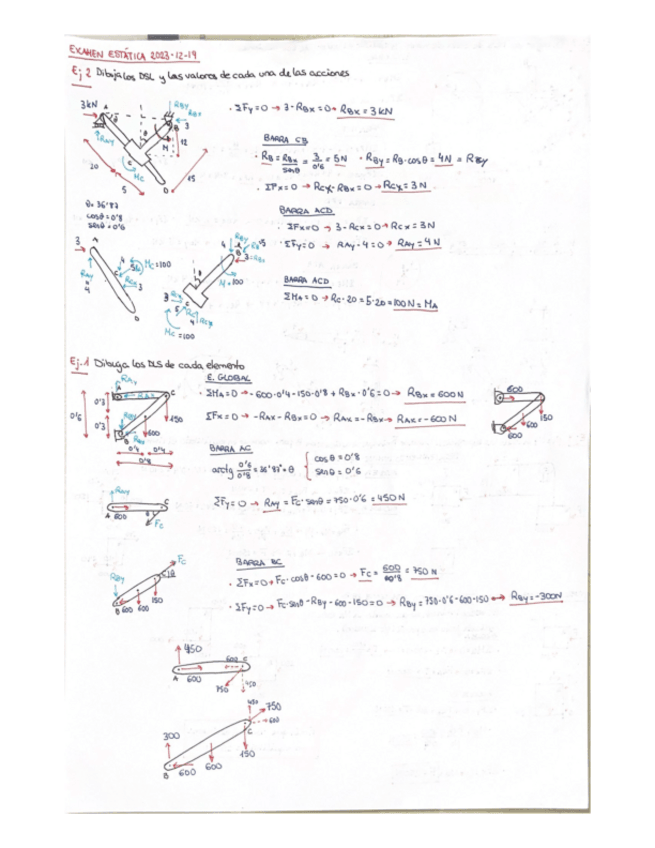 EXAMEN ESTÁTICA 2023-12-19
Ej 2 Dibuja los DSL y los valores de cada una de las acciones
3 kN
A
RBY
RBx
B
3
12
RAY
M
C
MC
20
5
15
D
ΣFy=0 → 3-RBx=0 → RBx = 3 kN
BARRA CB
RB = RBx/senθ = 3/0'6 = 5N · RBy = RB·cosθ = 4N = RBy
ΣFx=0 → RCx-RBx=0 → RCx = 3N
θ = 36'87
cosθ = 0'8
senθ = 0'6
BARRA ACD
ΣFx=0 → 3-RCx=0 → RCx = 3N
ΣFy=0 → RAY-4=0 → RAY = 4N
3
A
RAY
4
MC=100
RCx
3
D
4
RBY
B
3=RBx
M=100
3
RCx
RC
4
MC=100
BARRA ACD
ΣMA=0 → RC·20 = 5·20 = 100N = MA
Ej-1 Dibuja los DLS de cada elemento
E. GLOBAL
ΣMA=0 → -600·0'4-150·0'8+RBx·0'6=0 → RBx = 600N
ΣFx=0 → -RAx-RBx=0 → RAx=-RBx → RAx=-600N
RAY
A
C
0'6
0'3
0'3
150
600
B
0'4
0'4
0'8
600
150
600
600
BARRA AC
arctg 0'6/0'8 = 36'87° = θ
cosθ = 0'8
senθ = 0'6
ΣFy=0 → RAY = FC·senθ = 750·0'6 = 450N
RAY
A
600
C
FC
BARRA BC
ΣFx=0 → FC·cosθ-600=0 → FC = 600/0'8 = 750N
ΣFy=0 → FC·senθ-RBY-600-150=0 → RBy = 750·0'6-600-150 ↔ RBy=-300N
FC
RBY
C
θ
150
B 600 600
450
600 C
A
600
750
450
450
750
600
C
300
150
600
600
B